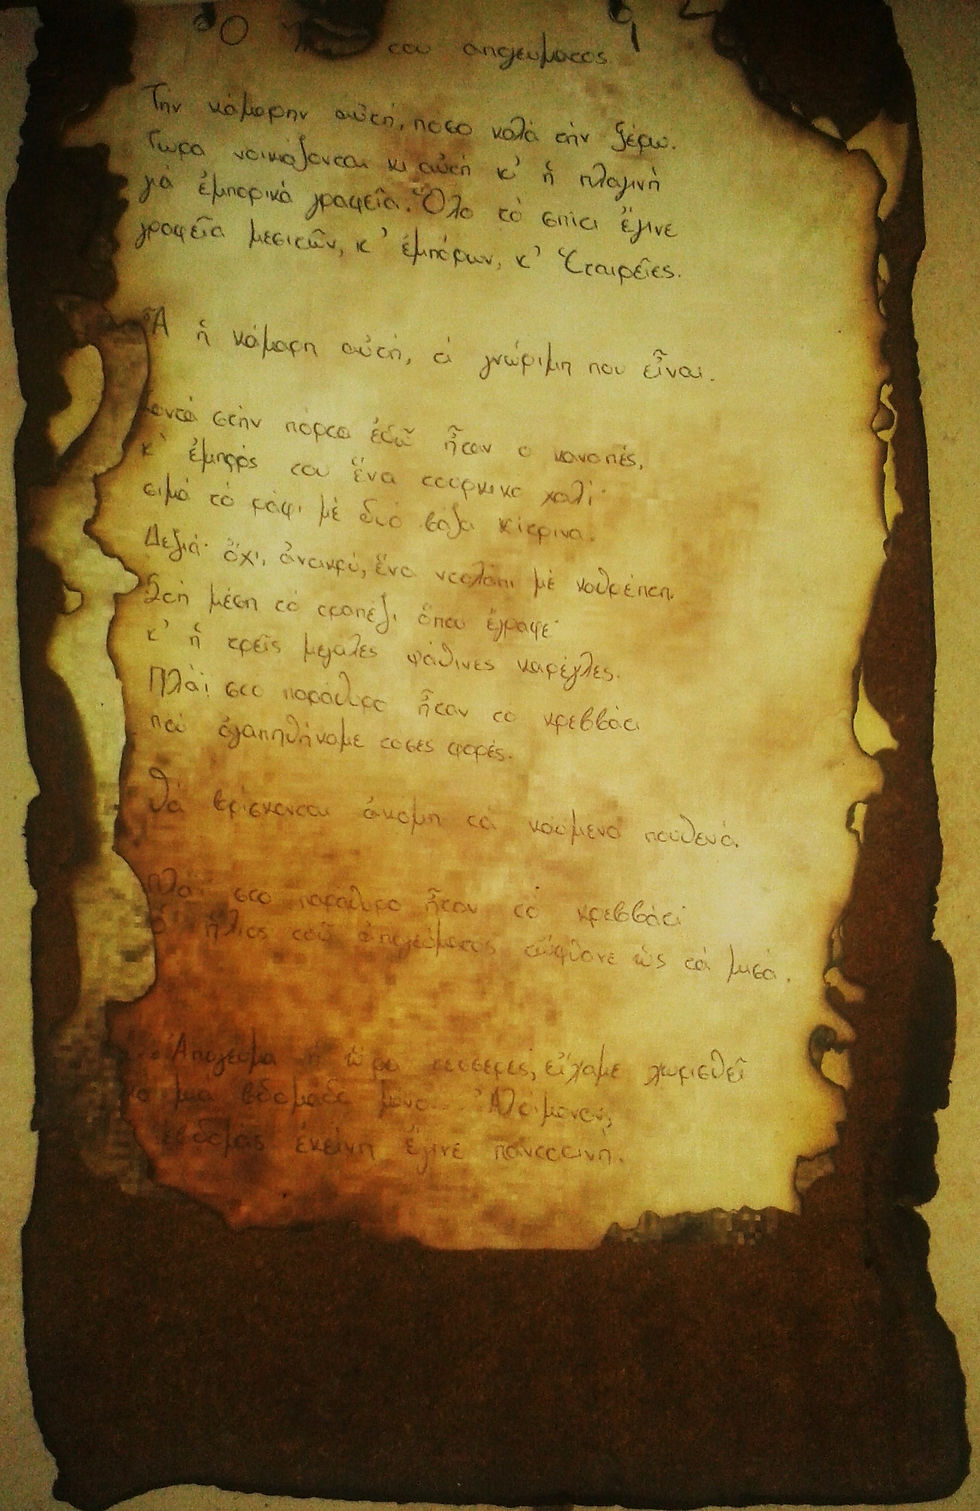 Ὁ του απογεύματος
Την κάμαρην αὐτή, ποσο καλά τὴν ξέρω.
Τωρα νοικιάζονται κι αὐτὴ κ' ἡ πλαγινὴ
γιὰ ἐμπορικὰ γραφεῖα. Ὅλο τὸ σπίτι ἔγινε
γραφεῖα μεσιτῶν, κ' ἐμπόρων, κ' Ἑταιρεῖες.
Ἆ ἡ κάμαρη αὐτή, τὶ γνώριμη που εἶναι.
Κοντὰ στὴν πόρτα ἐδῶ ἦταν ο καναπές,
κ' ἐμπρὸς του ἕνα τουρκικο χαλί·
σιμὰ τὸ ράφι μὲ δυὸ βάζα κίτρινα.
Δεξιά· ὄχι, ἀντικρύ, ἕνα ντολάπι μὲ καθρέπτη.
Στὴ μέση τὸ τραπέζι ὅπου ἔγραφε·
κ' ἡ τρεῖς μεγαλες ψάθινες καρέγλες.
Πλάϊ στο παράθυρο ἦταν το κρεββάτι
που ἀγαπηθήκαμε τοσες φορές.
Θὰ βρίσκονται ἀκομη τὰ καϋμενα πουθενά.
Πλάϊ στο παράθυρο ἦταν τὸ κρεββάτι·
ὁ ἥλιος τοῦ ἀπογεύματος τὤφθανε ὡς τὰ μισά.
Απόγευμα ἡ ὥρα τεσσερες, εἴχαμε χωρισθεῖ
μια βδομάδα μονο... Ἀλοίμονον,
ἑβδομὰς ἐκείνη ἔγινε παντοτινή.